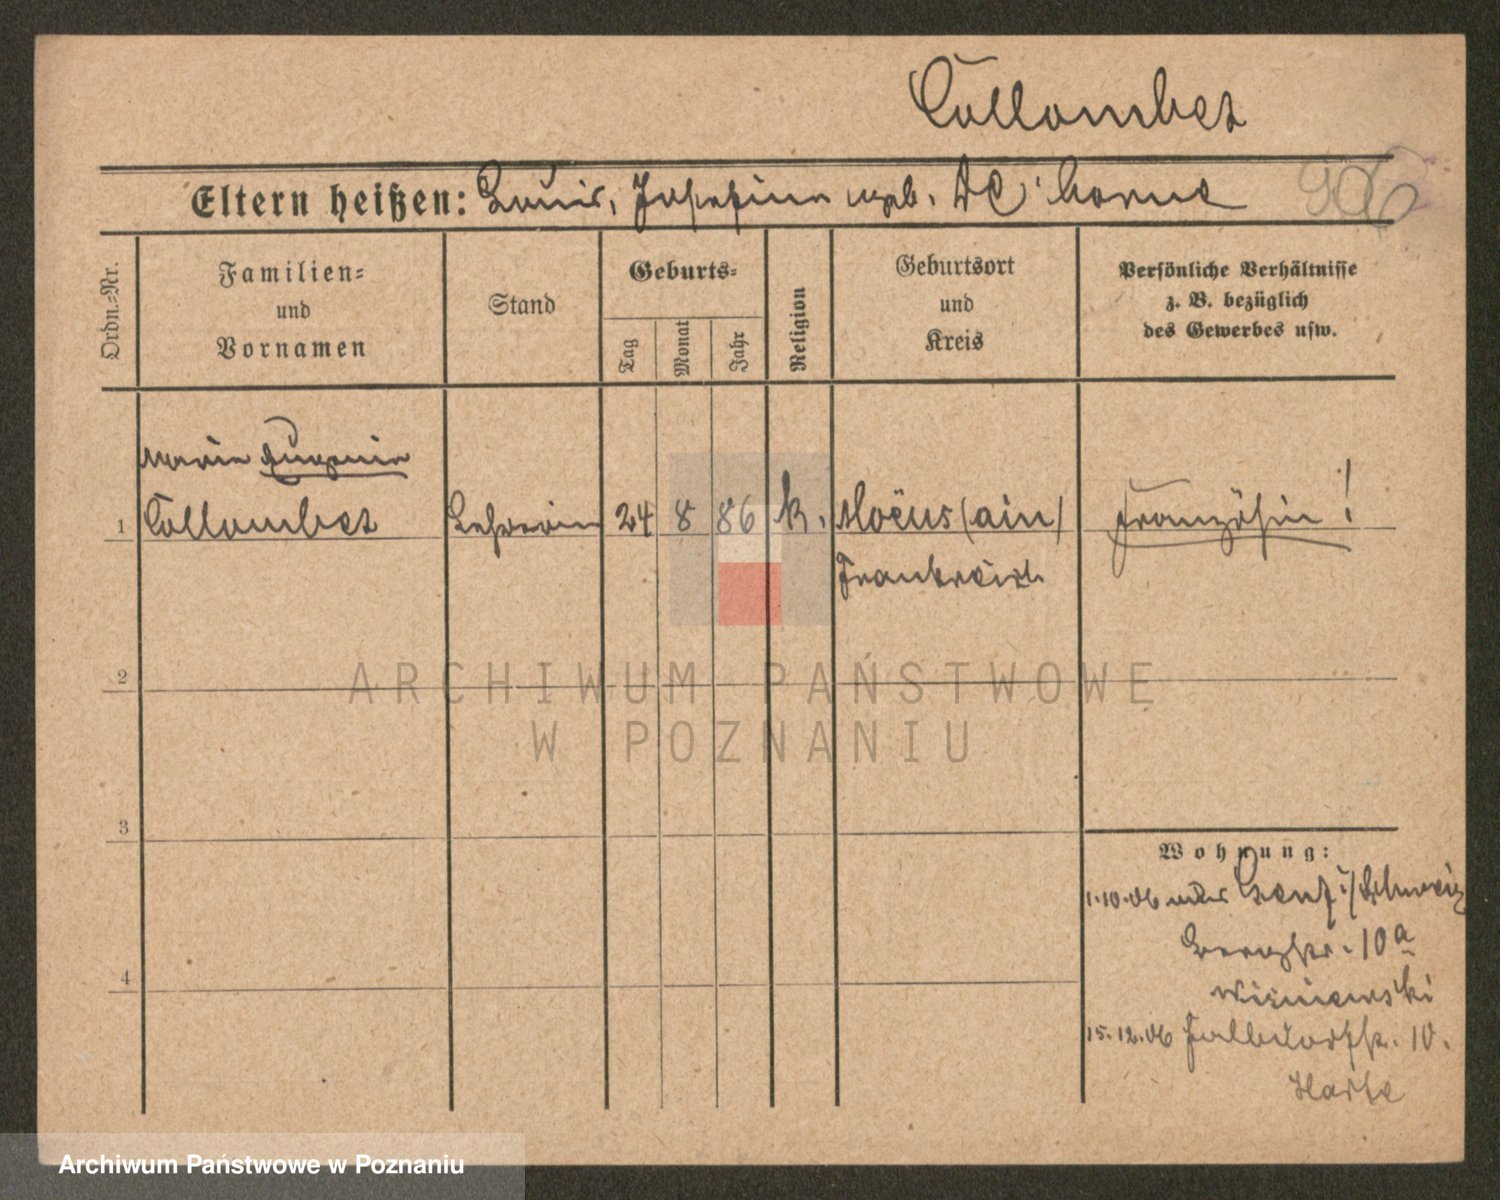 Collombet
Eltern heißen: Louis, Josefine geb. De'
906
Ordn.-Nr.
Familien-
und
Vornamen
Stand
Geburts-
Tag
Monat
Jahr
Religion
Geburtsort
und
Kreis
Persönliche Verhältnisse
z. B. bezüglich
des Gewerbes usw.
Marie Eugenie
1 Collombet Lehrerin 24 8 86 k. (ain) Französin!
Frankreich
2
3
4
Wohnung:
1.10.06 Genf i/Schweiz
10a
Wisniewski
15.12.06 10.
ARCHIWUM PAŃSTWOWE
W POZNANIU
Archiwum Państwowe w Poznaniu